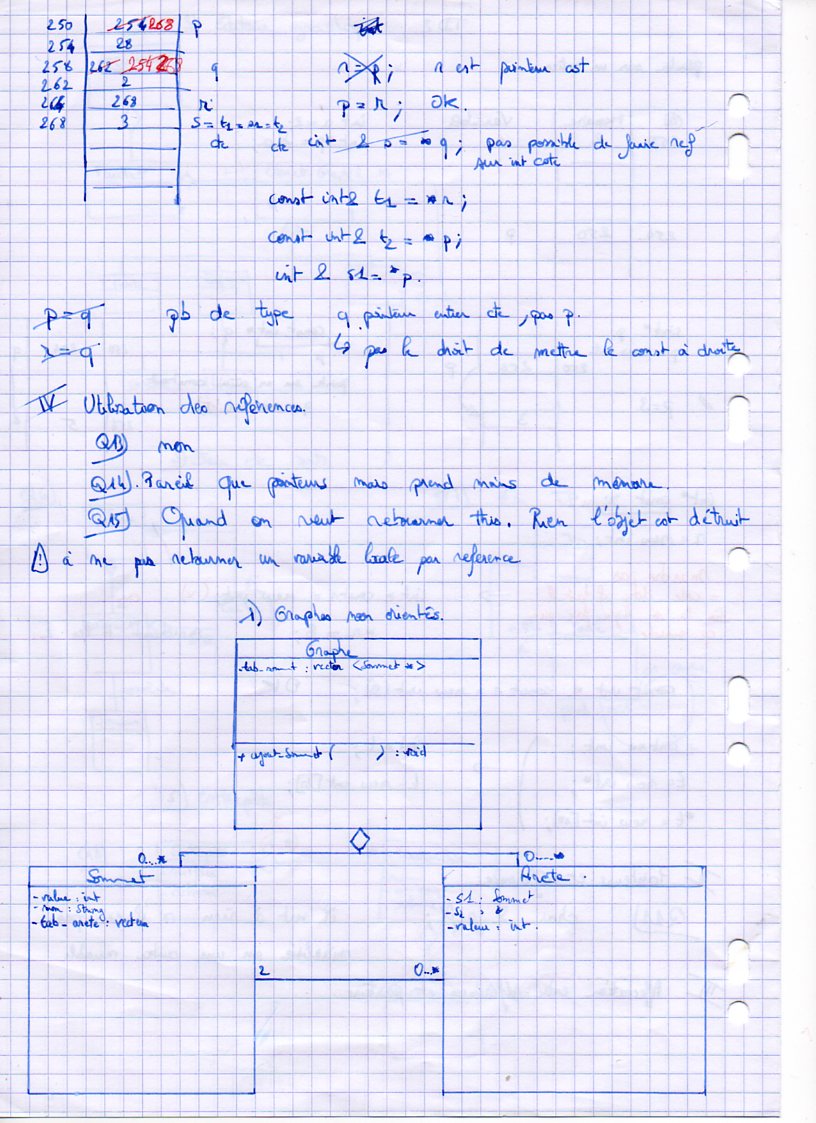 250 254 268 p
254 28
258 262 254 q
262 2
264 268 r
268 3 s = t1 = *r = t2
cte cte
r = p; r est pointeur cst
p = r; OK.
int & s = *q; pas possible de faire ref
sur int cste
const int& t1 = *r;
const int & t2 = *p;
int & s1 = *p.
p = q pb de type q pointeur entier cte, pas p.
r = q ↳ pas le droit de mettre le const à droite
IV Utilisation des références.
Q13) non
Q14). Pareil que pointeurs mais prend moins de mémoire.
Q15) Quand on veut retourner this. Rien l'objet est détruit
⚠ à ne pas retourner un variable locale par reference
1) Graphes non orientés.
Graphe
-tab_somet : vector <Sommet *>
+ ajout_Sommet ( ) : void
0...* 0...*
Sommet
- value : int
- nom : String
- tab_arete : vecteur
Arete.
- S1 : Sommet
- S2 : "
- valeur : int.
2 0...*